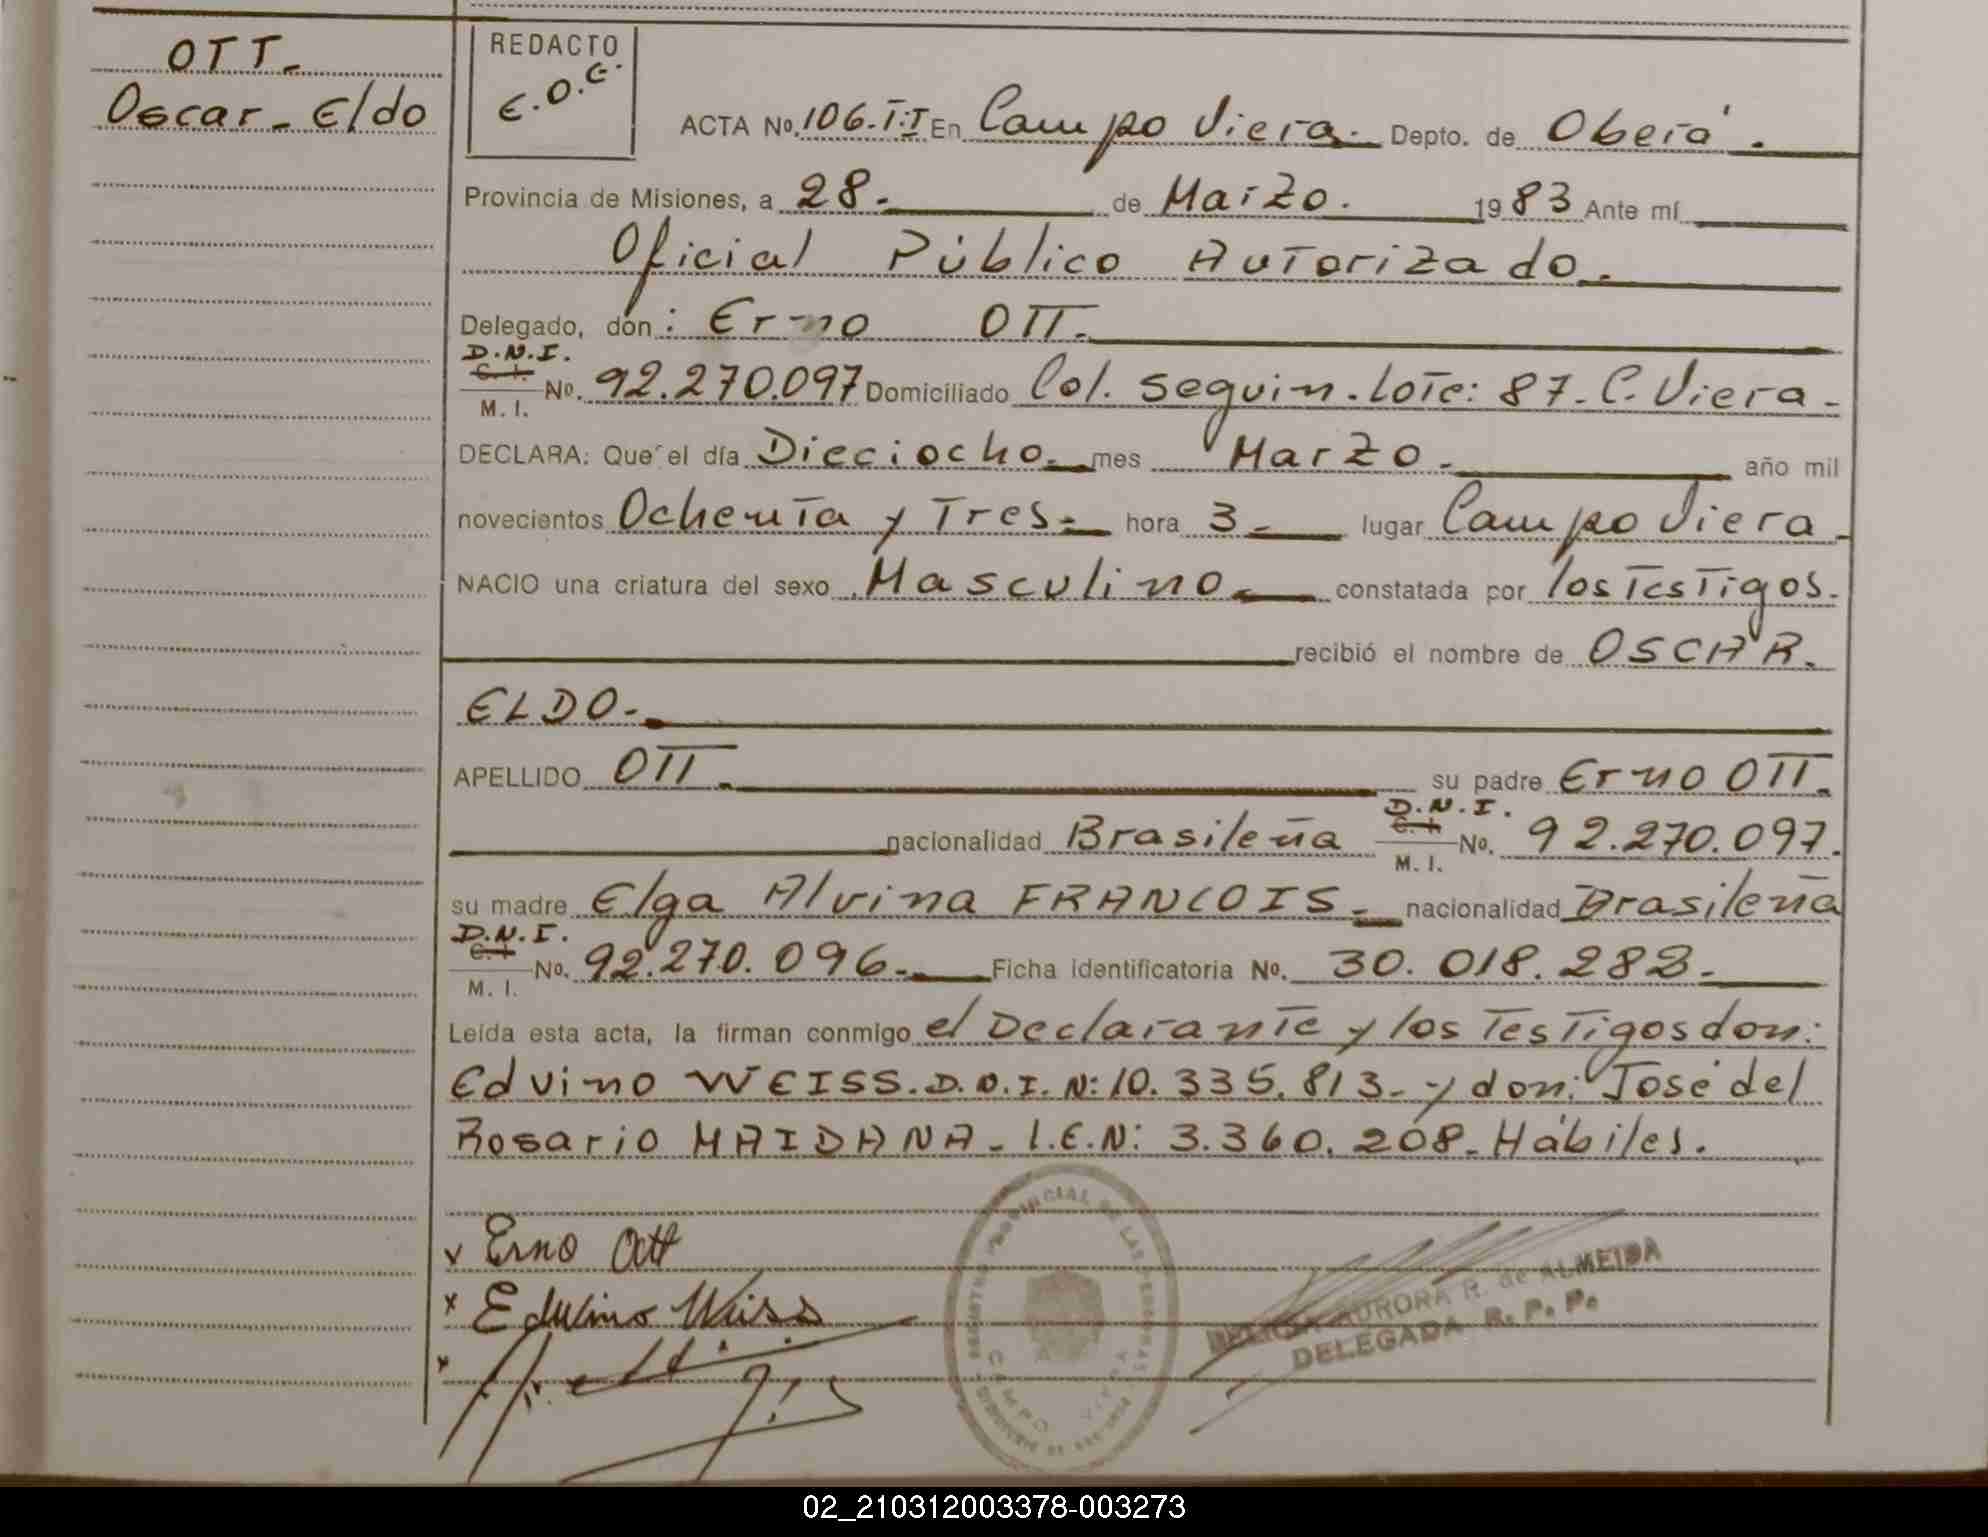 OTT.
Oscar. Eldo
REDACTO
E.O.E.
ACTA No. 106.T:I En Campo Viera. Depto. de Oberá.
Provincia de Misiones, a 28. de Marzo. 1983 Ante mí
Oficial Público Autorizado.
Delegado, don: Erno OTT.
D.N.I.
C. I.
M. I.
No. 92.270.097 Domiciliado Col. Seguin. Lote: 87. C. Viera.
DECLARA: Que el día Dieciocho. mes Marzo. año mil
novecientos Ochenta y Tres. hora 3. lugar Campo Viera.
NACIO una criatura del sexo Masculino constatada por los Testigos.
recibió el nombre de OSCAR.
ELDO.
APELLIDO OTT. su padre Erno OTT.
D.N.I.
nacionalidad Brasileña C. I. M. I. No. 92.270.097.
su madre Elga Alvina FRANCOIS. nacionalidad Brasileña
D.N.I.
C. I.
M. I.
No. 92.270.096. Ficha identificatoria No. 30.018.282.
Leída esta acta, la firman conmigo el Declarante y los Testigos don:
Edvino WEISS. D.O.I. N: 10.335.813. y don: José del
Rosario MAIDANA. L.E.N: 3.360.208. Hábiles.
x Erno Ott
x Edwino Weiss
x
REGISTRO PROVINCIAL DE LAS PERSONAS
CAMPO VIERA
AURORA R. de ALMEIDA
DELEGADA R. P. P.
02_210312003378-003273